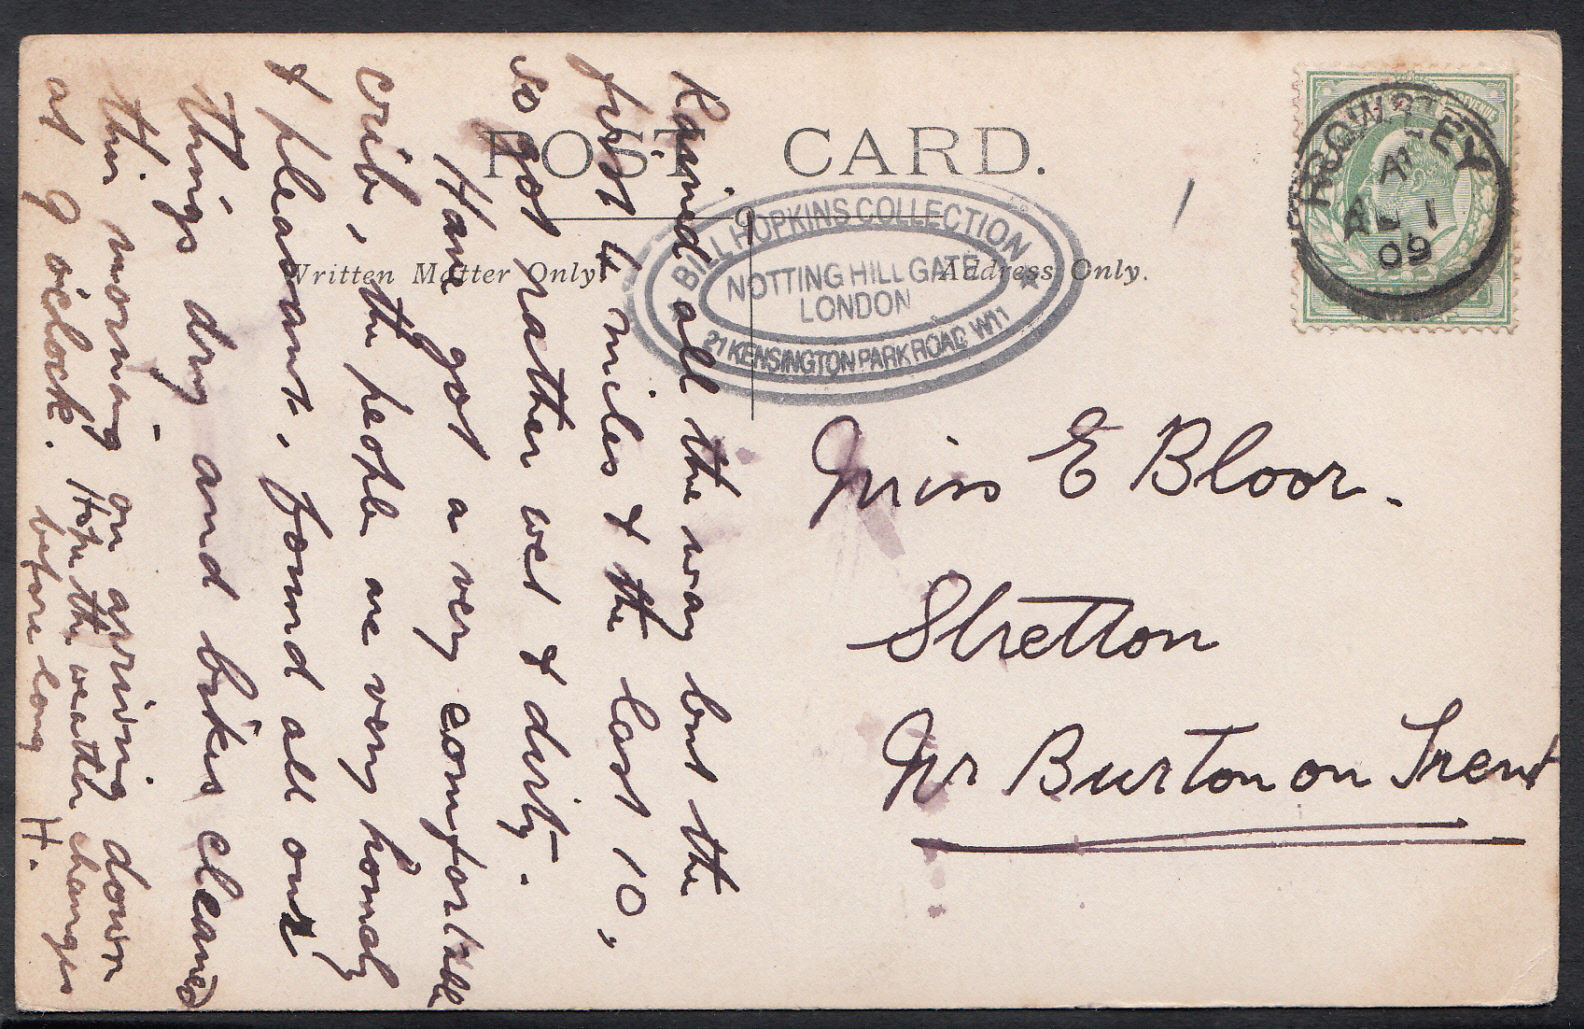 POST CARD.
Written Matter Only.
Address Only.
BILL HOPKINS COLLECTION
NOTTING HILL GATE
LONDON
21 KENSINGTON PARK ROAD, W11
ROWSLEY
AP 1
09
Miss E Bloor.
Stretton
Nr Burton on Trent
Rained all the way but the
first 4 miles & the last 10,
so got rather wet & dirty.
Have got a very comfortable
crib, the people are very homely
& pleasant, found all our
things dry and bikes cleaned
this morning on arriving down
at 9 o'clock. Hope the weather changes
before long H.